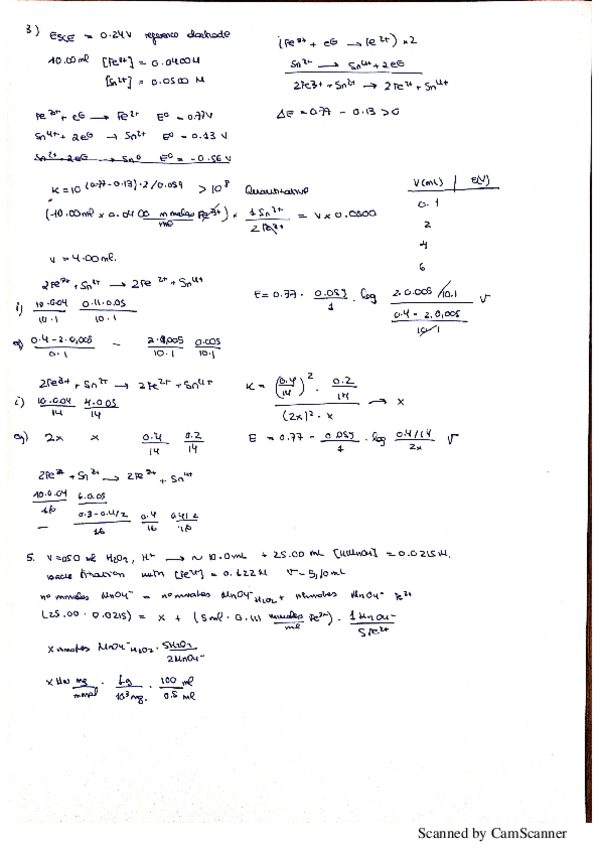 3) ESCE = 0.24V reference electrode
10.00ml [Fe3+] = 0.0400M
[Sn2+] = 0.0500 M
(Fe3+ + e⊖ → Fe2+) ×2
Sn2+ → Sn4+ + 2e⊖
2Fe3+ + Sn2+ → 2Fe2+ + Sn4+
Fe3+ + e⊖ → Fe2+ E⁰ = 0.77V
Sn4+ + 2e⊖ → Sn2+ E⁰ = 0.13 V
Sn2+ + 2e⊖ → Sn0 E⁰ =
ΔE = 0.77 - 0.13 > 0
K = 10 (0.77-0.13)·2/0.059 > 10⁸ Quantitative
(10.00ml × 0.0400 mmoles Fe3+/ml) × 1Sn2+/2Fe3+ = V × 0.0500
V(mL) | E(V)
0.1
2
4
6
V = 4.00ml.
2Fe3+ + Sn2+ → 2Fe2+ + Sn4+
i) 10·0.04/10.1 0.1·0.05/10.1
eq) 0.4-2·0.005 - 2·0.005/10.1 0.005/10.1
E = 0.77 - 0.059/1 · log 2·0.005/10.1 / 0.4-2·0.005/10.1 V
2Fe3+ + Sn2+ → 2Fe2+ + Sn4+
i) 10·0.04/14 4·0.05/14
eq) 2x x 0.4/14 0.2/14
K = (0.4/14)² · 0.2/14 / (2x)² · x → x
E = 0.77 - 0.059/1 · log 0.4/14 / 2x V
2Fe3+ + Sn2+ → 2Fe2+ + Sn4+
10·0.04/16 6·0.05
- 0.3-0.4/2/16 0.4/16 0.4/2/16
5. H2O2, H+ → ~ 10.0ml + 25.00 mL = 0.0215M.
with [Fe2+] =
no mmoles MnO4- = no mmoles MnO4- H2O2 + MnO4- Fe2+
(25.00 · 0.0215) = x + (5ml · mmoles Fe2+/ml) · 1MnO4-/5Fe2+
x mmoles MnO4- H2O2 · 5H2O2/2MnO4-
x mg/mmol · 1g/10³mg · 100 ml/0.5 ml
Scanned by CamScanner